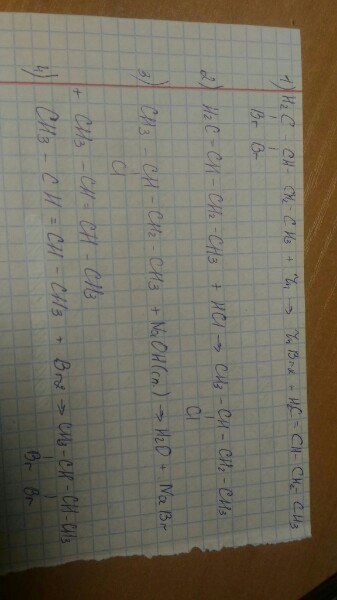 1) H2C - CH - CH2 - CH3 + Zn → ZnBr2 + H2C = CH - CH2 - CH3
Br Br
2) H2C = CH - CH2 - CH3 + HCl → CH3 - CH - CH2 - CH3
Cl
3) CH3 - CH - CH2 CH3 + NaOH(сп) → H2O + NaBr
Cl
+ CH3 - CH = CH - CH3
4) CH3 - CH = CH - CH3 + Br2 → CH3 - CH - CH - CH3
Br Br